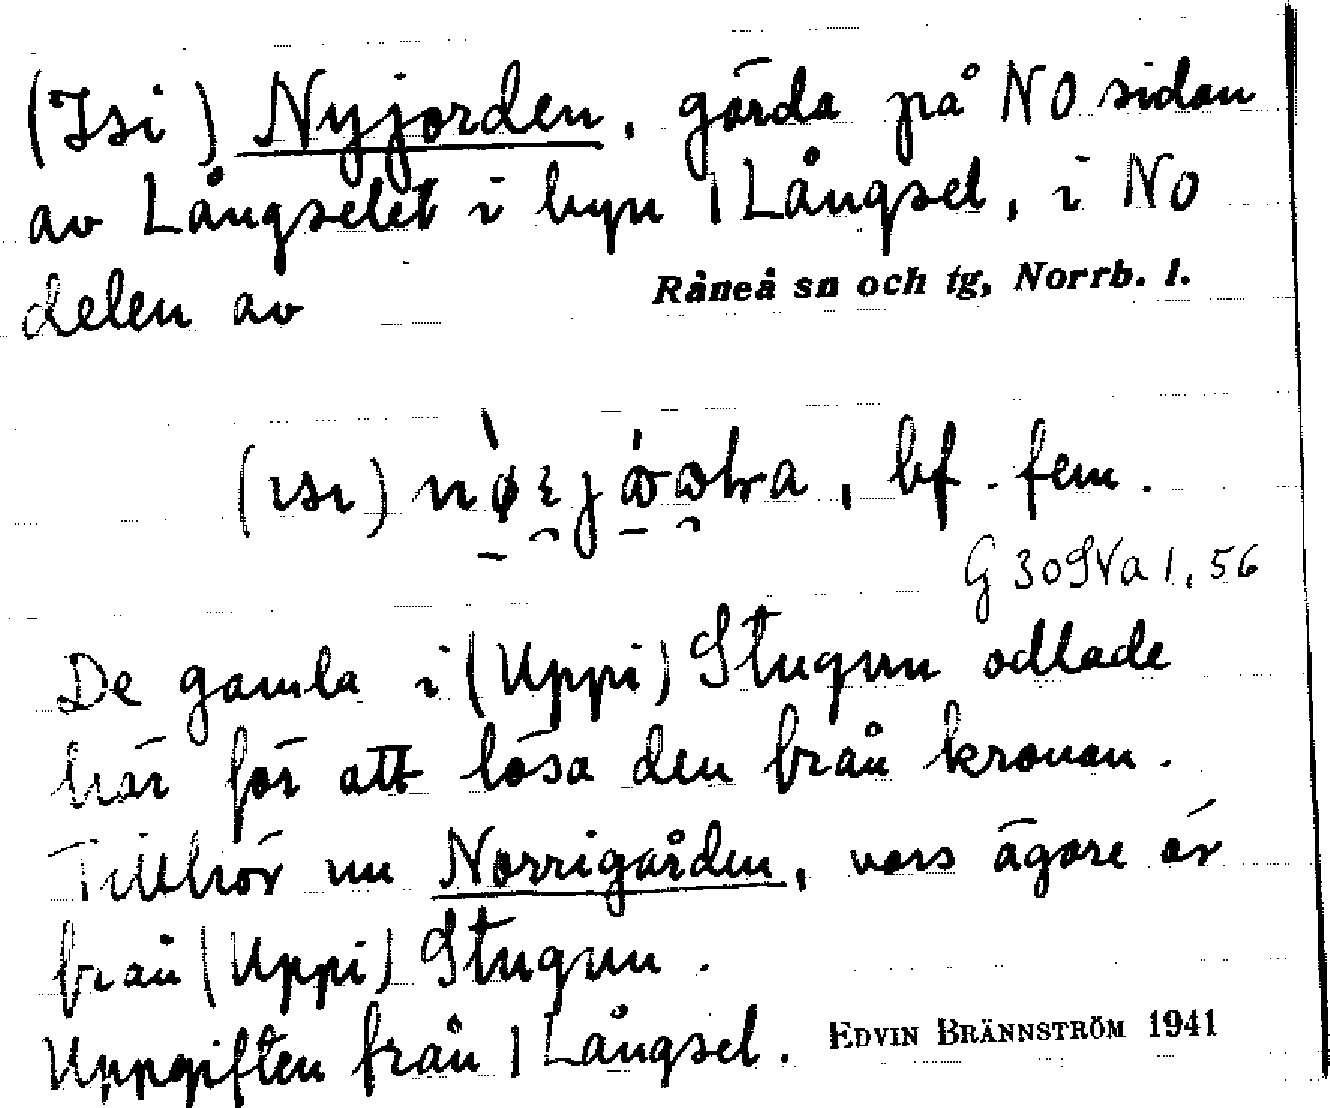 (Isi) Nyjorden, gärda på NO sidan
av Långselet i byn 1 Långsel, i NO
delen av Råneå sn och tg, Norrb. l.
bf. fem.
G 30SVa 1,56
De gamla i (Uppi) Stugun odlade
här för att lösa den från kronan.
Tillhör nu Norrigården, vars ägare är
från (Uppi) Stugun.
Uppgiften från 1 Långsel. EDVIN BRÄNNSTRÖM 1941